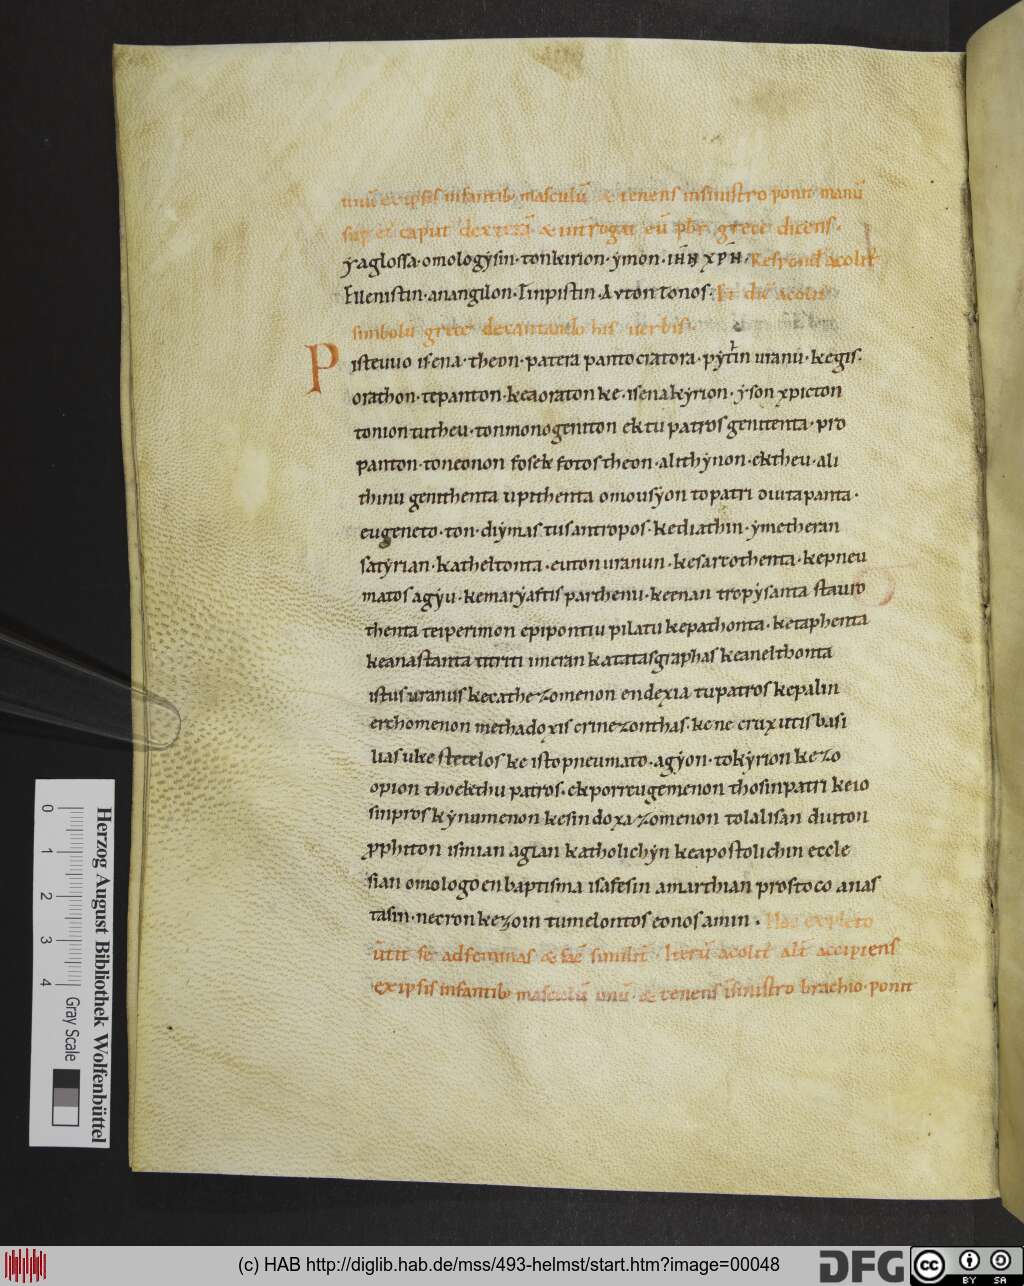 unū ex ipsis infantib; masculū & tenens insinistro ponit manū
sup et caput dexterā & introgat eū pbr grece dicens.
yaglossa·omologẏsin·tonkirion·ẏmon·IHN XPN· Respond acolit
Ellenistin·anangilon·Tinpistin·Avton Tonos· Et dic acolit
simbolū grece decantando his verbis
Pistevuo isena·theon·patera pantocratora·pẏtin uranu·kegis·
orathon·tepanton·keaoraton ke·isena kẏrion·ẏson xpicton
tonion tutheu·tonmonogeniton ek tu patros genitenta·pro
panton·toneonon fosek fotos theon·alithẏnon·ektheu·ali
thinu genithenta upithenta omousẏon topatri diutapanta·
eugeneto·ton·diẏmas tus antropos·kediathin·ẏmetheran
satẏrian·katheltonta·euton uranun·kesartothenta·kepneu
matos agẏu·kemarẏastis parthenu·keenan tropẏsanta stauro
thenta teiperimon epipontiu pilatu kepathonta·ketaphenta
keanastanta titriti imeran katatasgraphas keanelthonta
istus uranus kecathezomenon endexia tupatros kepalin
erchomenon methadoxis crinezonthas·kene crux utis basi
lias uke stetelos ke istopneumato·agẏon·tokẏrion kezo
opion thoekthu patros·ekporreugemenon thosinpatri keio
sinpros kẏnumenon kesin doxazomenon tolalisan dutton
pphiton ismian agian katholichẏn keapostolichin eccle
sian omologo en baptisma isafesin amarthian prostoco anas
tasin·necron kezoin tumelontos eonos amin· Hac expleto
ūtit se ad feminas & fac similit· Iterū acolit alt accipiens
ex ipsis infantib; masculū unū·& tenens īsinistro brachio·ponit
0 1 2 3 4
Gray Scale
Herzog August Bibliothek Wolfenbüttel
(c) HAB http://diglib.hab.de/mss/493-helmst/start.htm?image=00048
DFG
cc BY SA